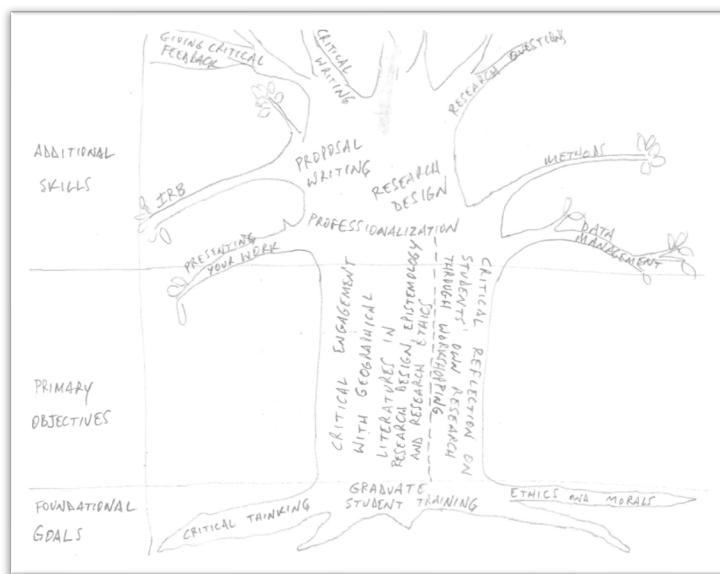 GIVING CRITICAL
FEEDBACK
CRITICAL
WRITING
RESEARCH QUESTIONS
ADDITIONAL
SKILLS
PROPOSAL
WRITING
RESEARCH
DESIGN
METHODS
IRB
PROFESSIONALIZATION
DATA
MANAGEMENT
PRESENTING
YOUR WORK
PRIMARY
OBJECTIVES
CRITICAL ENGAGEMENT
WITH GEOGRAPHICAL
LITERATURES IN
RESEARCH DESIGN, EPISTEMOLOGY
AND RESEARCH ETHICS
CRITICAL REFLECTION ON
STUDENTS' OWN RESEARCH
THROUGH WORKSHOPPING
FOUNDATIONAL
GOALS
CRITICAL THINKING
GRADUATE
STUDENT TRAINING
ETHICS AND MORALS